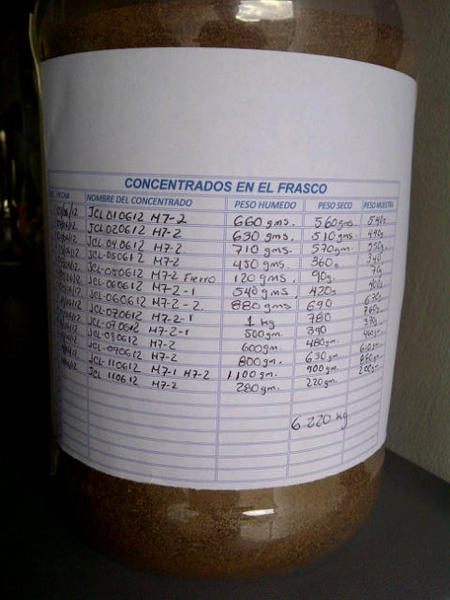 CONCENTRADOS EN EL FRASCO
FECHA NOMBRE DEL CONCENTRADO PESO HUMEDO PESO SECO PESO MUESTRA
JCL010612 M7-2 660 gms. 560gms. 540g
JCL020612 M7-2 630 gms. 510 gms. 490g
JCL040612 M7-2. 710 gms. 570gm. 550g
JCL-050612 M7-2 450 gms. 360g 340
JCL-050612 M7-2 Fierro 120 gms. 90g. 70g
JCL 060612 M7-2-1 540 gms. 420g 400g
JCL-060612 M7-2-2. 880 gms. 690 670g
JCL-070612 M7-2-1 1 kg 780 760g
JCL-070612 M7-2-1 500gm. 390 370g
JCL-080612 M7-2 600gm. 480gm. 460gm
JCL-090612 M7-2 800gm. 630gm.
JCL-110612 M7-1 M7-2 1,100gm. 900gm. 880gm
JCL 110612 M7-2 280gm. 220gm. 200gm
6.220 kg